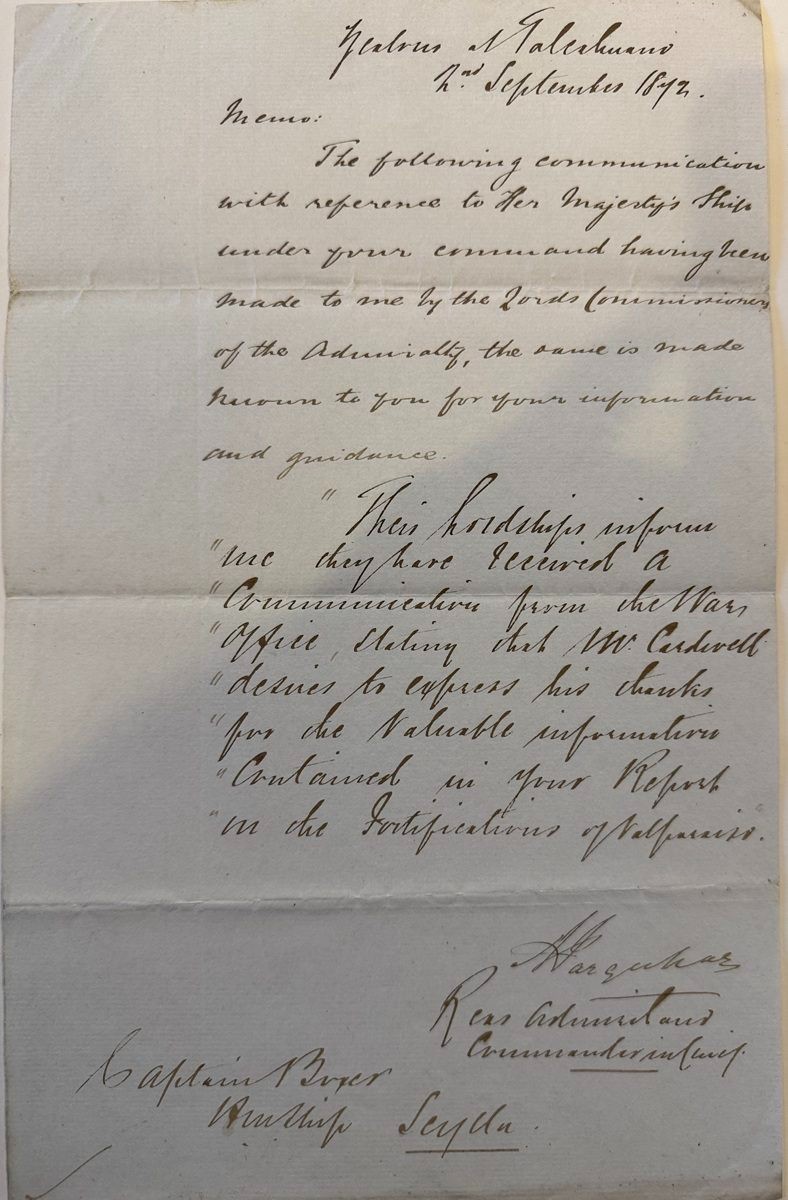 Zealous at Talcahuano
2nd September 1872.
Memo:
The following communication
with reference to Her Majesty's Ship
under your command having been
made to me by the Lords Commissioners
of the Admiralty, the same is made
known to you for your information
and guidance.
" Their Lordships inform
" me they have received a
" Communication from the War
" Office, stating that Mr. Cardwell
" desires to express his thanks
" for the Valuable information
" Contained in your Report
" on the Fortifications of Valparaiso."
A Farquhar
Rear Admiral and
Commander in Chief.
Captain Boxer
Her Ship Scylla.